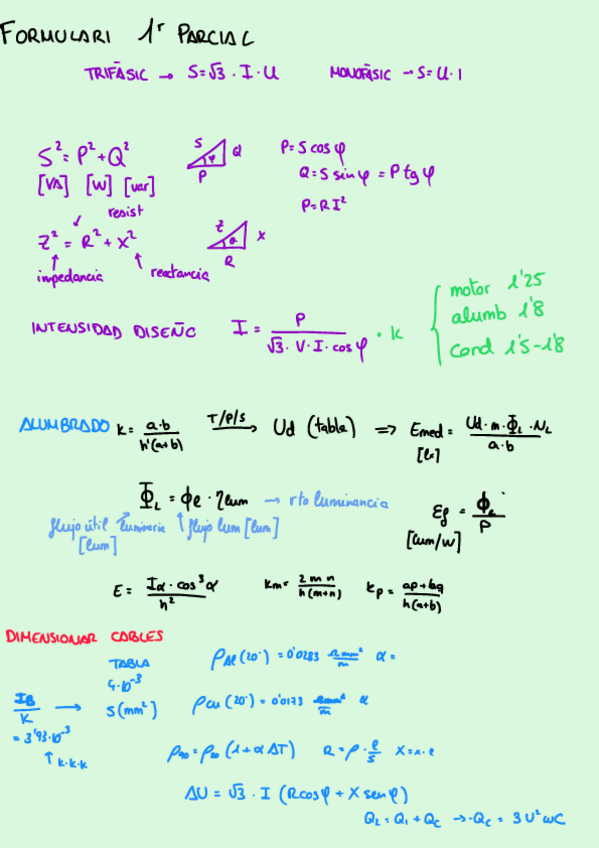 FORMULARI 1r PARCIAL
TRIFÀSIC → S=√3 · I · U
MONOFÀSIC → S= U · I
S² = P² + Q²
[VA] [W] [var]
S Q φ P
P= S cos φ
Q= S sin φ = P tg φ
P= R I²
resist
Z² = R² + X²
impedancia reactancia
Z X R
INTENSIDAD DISEÑO I = P / √3 · V · I · cos φ · k
motor 1'25
alumb 1'8
cond 1'5-1'8
ALUMBRADO k = a·b / h'(a+b) T/P/S → Ud (tabla) ⇒ Emed = Ud · m · ΦL · NL / a·b
[lx]
ΦL = ϕe · ηlum → rto luminancia
flujo útil luminaria flujo lum [lum]
[lum]
[lum/W]
E = Iα · cos³ α / h² km = 2 m n / h(m+n)
DIMENSIONAR CABLES
TABLA
IB / K → S (mm²)
= 3'93·10⁻³
k·k·k
ρAl (20°) = 0'0283 Ω mm² / m α =
ρcu (20°) = 0'0173 Ω mm² / m α
(1 + α ΔT) R = ρ · l / S
ΔU = √3 · I (R cos φ + X sen φ)
Q2 = Q1 + QC → -QC = 3 U² ωC